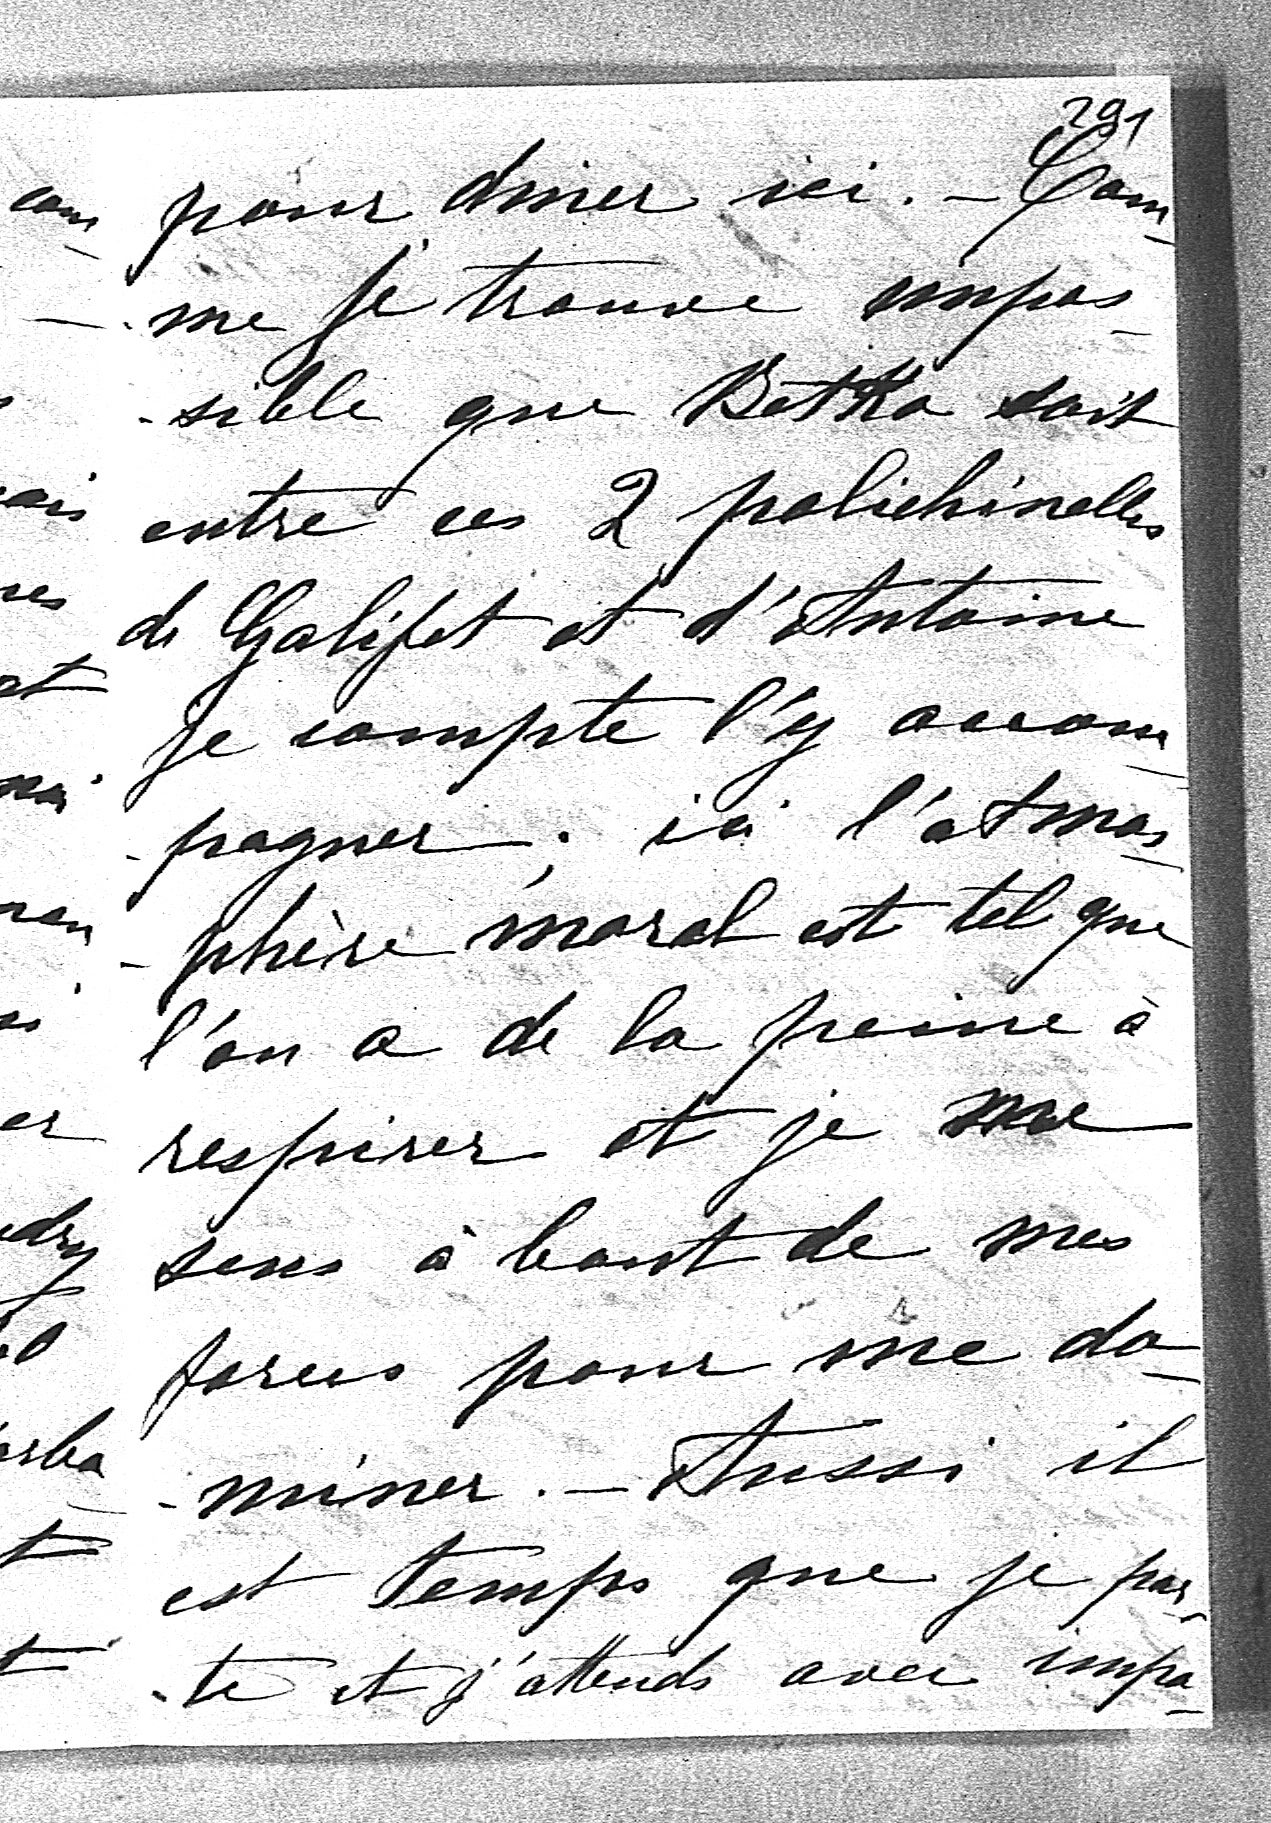 291
pour diner ici. – Com-
-me je trouve impos-
-sible que Betka soit
entre ces 2 polichinelles
de Galifet et d'Antoine
je compte l'y accom-
-pagner; ici l'atmos-
-phère moral est tel que
l'on a de la peine à
respirer et je me
sens à bout de mes
forces pour me do-
-miner. – Aussi il
est temps que je par-
-te et j'attends avec impa-